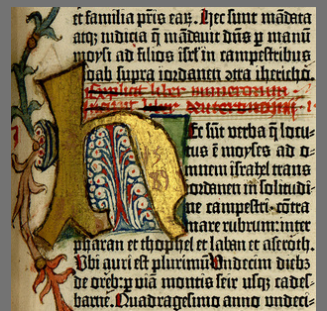 et familia pr̃is eaꝝ. Hec sunt mãdata
atqꝫ iudicia q̃ mãdauit dñs ꝑ manũ
moysi ad filios isrl̃ in campestribus
moab supra iordanen ↄtra iherichõ.
Explicit liber numerorum.
Incipit liber deuteronomii.
Hec sũt verba q̃ locu-
tus ẽ moyses ad o-
mnem israhel trans
iordanem in solitudi-
ne campestri cõtra
mare rubrum: inter
pharan et thophel et laban et aseroth.
Vbi auri est plurimũ: Vndecim diebꝫ
de oreb: ꝑ viã montis seir usqꝫ cades-
barne. Quadragesimo anno vndeci-